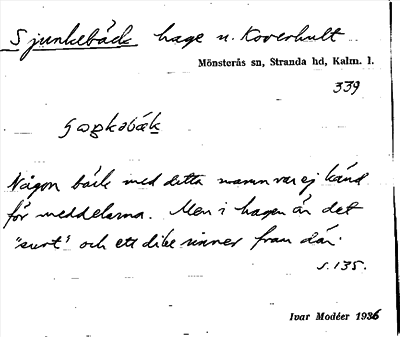 Sjunkebäck hage u. Koverhult
Mönsterås sn, Stranda hd, Kalm. l.
339
Någon bäck med detta namn var ej känd
för meddelarna. Men i hagen är det
"surt" och ett dike rinner från där.
s. 135.
Ivar Modéer 1936